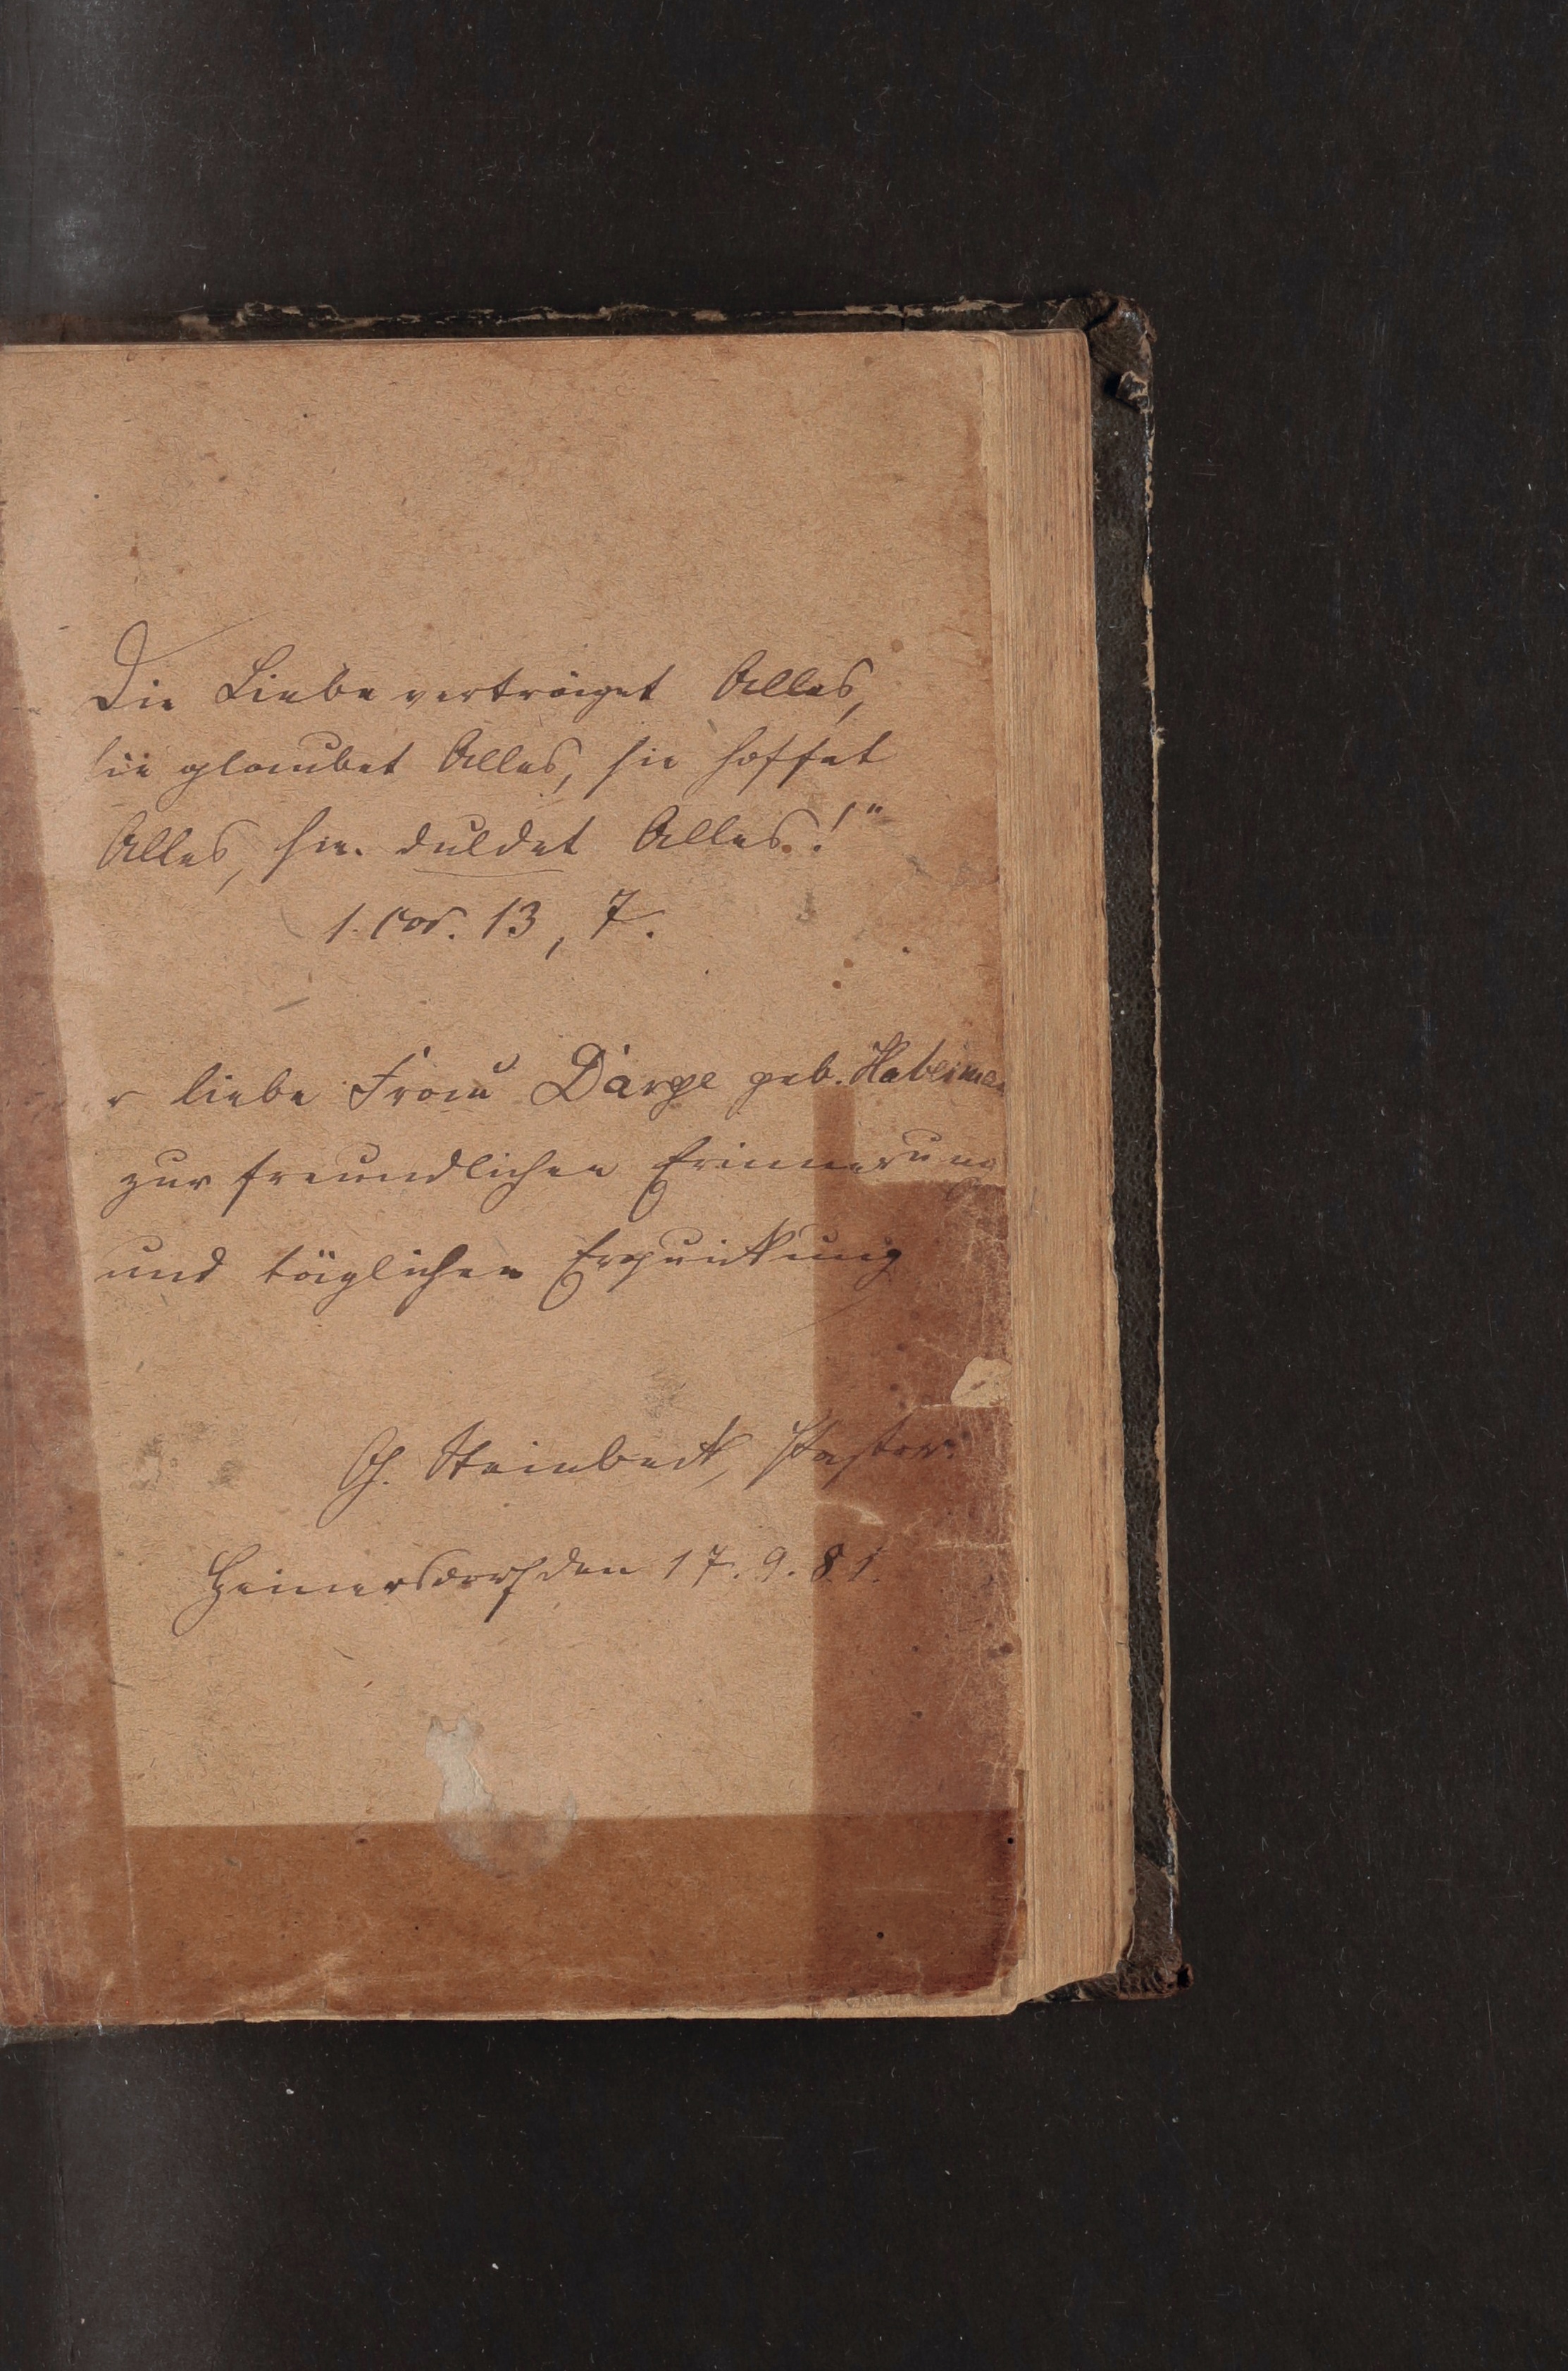 Die Liebe verträget Alles,
sie glaubet Alles, sie hoffet
Alles, sie duldet Alles!“
1. Cor. 13, 7.
r liebe Frau Darge geb.
zur freundlichen Erinnerung
und täglichen Erquickung
Steinbeck, Pastor.
Heinersdorf den 17. 9. 81.